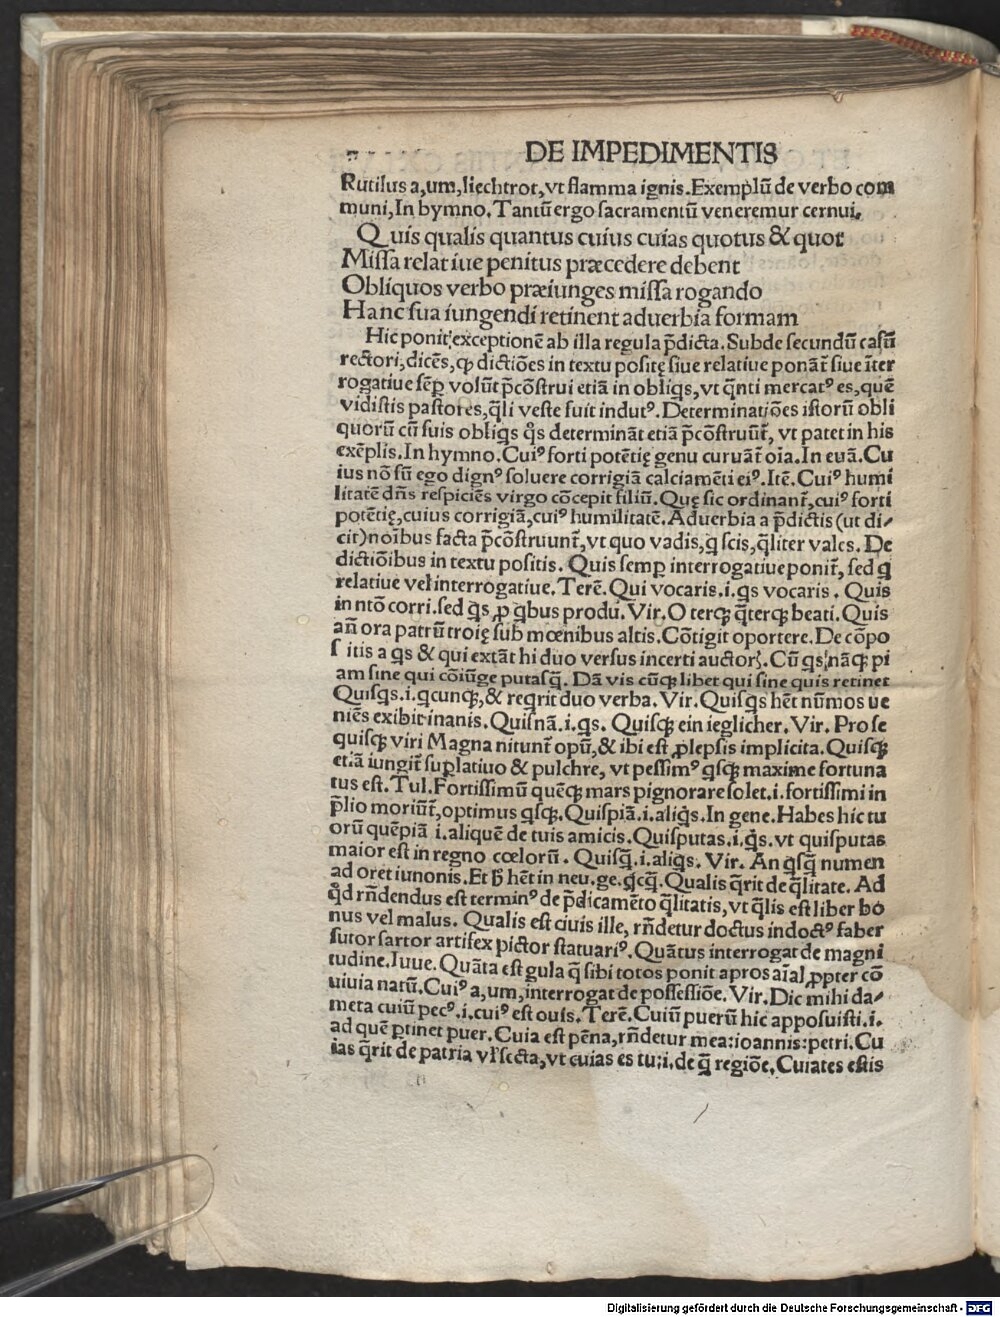 DE IMPEDIMENTIS
Rutilus a,um,liechtrot,vt flamma ignis.Exemplū de verbo com
muni,In hymno.Tantū ergo sacramentū veneremur cernui.
Quis qualis quantus cuius cuias quotus & quot
Missa relatiue penitus præcedere debent
Obliquos verbo præiunges missa rogando
Hanc sua iungendi retinent aduerbia formam
Hic ponit᷑ exceptionē ab illa regula p̄dicta.Subde secundū casū
rectori,dicēs,ꝙ dictiōes in textu positę siue relatiue ponāt᷑ siue īter
rogatiue sēp volūt p̄cōstrui etiā in obliq̄s,vt q̄nti mercatꝰ es,quē
vidistis pastores,q̄li veste fuit indutꝰ.Determinatiōes istorū obli
quorū cū suis obliq̄s q̄s determināt etiā p̄cōstruūt᷑, vt patet in his
exēplis.In hymno.Cuiꝰ forti potētię genu curuāt᷑ oīa.In euā.Cu
ius nō sū ego dignꝰ soluere corrigiā calciamēti eiꝰ.Itē.Cuiꝰ humi
litatē dn̄s respiciēs virgo cōcepit filiū.Quę sic ordinant᷑,cuiꝰ forti
potētię,cuius corrigiā,cuiꝰ humilitatē.Aduerbia a p̄dictis(ut di⸗
cit)noībus facta p̄cōstruunt᷑,vt quo vadis,q̄ scis,q̄liter vales. De
dictiōibus in textu positis. Quis semp interrogatiue ponit᷑, sed q
relatiue vel interrogatiue. Terē. Qui vocaris.i.q̄s vocaris. Quis
in ntō corri.sed q̄s ꝓ q̄bus produ. Vir.O terqȝ q̄terqȝ beati. Quis
an̄ ora patrū troię sub mœnibus altis.Cōtigit oportere.De cōpo
sitis a q̄s & qui extāt hi duo versus incerti auctoꝝ. Cū q̄s,nāqȝ pi
am sine qui cōiūge putasq̄. Dā vis cūqȝ libet qui sine quis retinet
Quisq̄s.i.q̄cunqȝ,& req̄rit duo verba. Vir. Quisq̄s hēt nūmos ue
niēs exibit inanis.Quisnā.i.q̄s. Quisqȝ ein ieglicher. Vir. Pro se
quisqȝ viri Magna nitunt᷑ opū,& ibi est ꝓlepsis implicita. Quisqȝ
etiā iungit᷑ suplatiuo & pulchre, vt pessimꝰ q̄sqȝ maxime fortuna
tus est. Tul.Fortissimū quēqȝ mars pignorare solet.i.fortissimi in
p̄lio moriūt᷑,optimus q̄sqȝ.Quispiā.i.aliq̄s.In gene. Habes hic tu
orū quēpiā i.aliquē de tuis amicis. Quisputas.i.q̄s.vt quisputas
maior est in regno cœlorū. Quisq̄.i.aliq̄s. Vir. An q̄sq̄ numen
ad oret iunonis.Et hēt in neu.ge.q̄cq̄.Qualis q̄rit de q̄litate. Ad
qd rn̄dendus est terminꝰ de p̄dicamēto q̄litatis,vt q̄lis est liber bo
nus vel malus. Qualis est ciuis ille, rn̄detur doctus indoctꝰ faber
sutor sartor artifex pictor statuariꝰ. Quātus interrogat de magni
tudine.Iuue.Quāta est gula q̄ sibi totos ponit apros aīal ꝓpter cō
uiuia natū.Cuiꝰ a,um,interrogat de possessiōe. Vir. Dic mihi da⸗
meta cuiū pecꝰ.i.cuiꝰ est ouis. Terē. Cuiū puerū hic apposuisti.i.
ad quē ptinet puer. Cuia est pēna,rn̄detur mea:ioannis:petri. Cu
ias q̄rit de patria vl̄ secta,vt cuias es tu:i.de q̄ regiōe. Cuiates estis
Digitalisierung gefördert durch die Deutsche Forschungsgemeinschaft - DFG